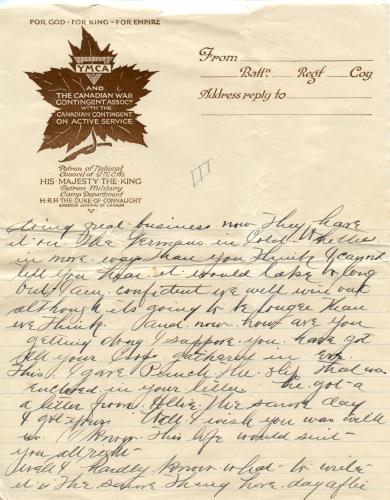 FOR GOD - FOR KING - FOR EMPIRE
YMCA
AND
THE CANADIAN WAR
CONTINGENT ASSOCN
WITH THE
CANADIAN CONTINGENT
ON ACTIVE SERVICE
Patron of National
Council of Y.M.C.A's
HIS MAJESTY THE KING
Patron Military
Camp Department
H·R·H THE DUKE OF CONNAUGHT
GOVERNOR GENERAL OF CANADA
From
Battn. Regt Coy
Address reply to
III
doing great business now They have
it on the Germans in
in more ways than you think I cannot
tell you than it would take to long
but am confident we well win out
although its going to be longer than
we think. And now how are you
getting along I suppose you have got
all your crop gathered in
this. I gave Punch the slip that was
enclosed in your letter. he got a
a letter from Allie the same day
I got yours. Well I wish you was with
us. I know this life would suit
you allright
Well I hardly know what to write
it is the same thing here day after